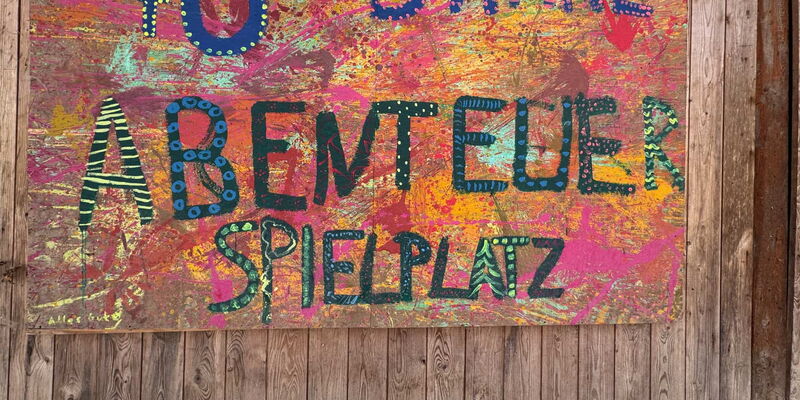 ABENTEUER
SPIELPLATZ
Alles Gute